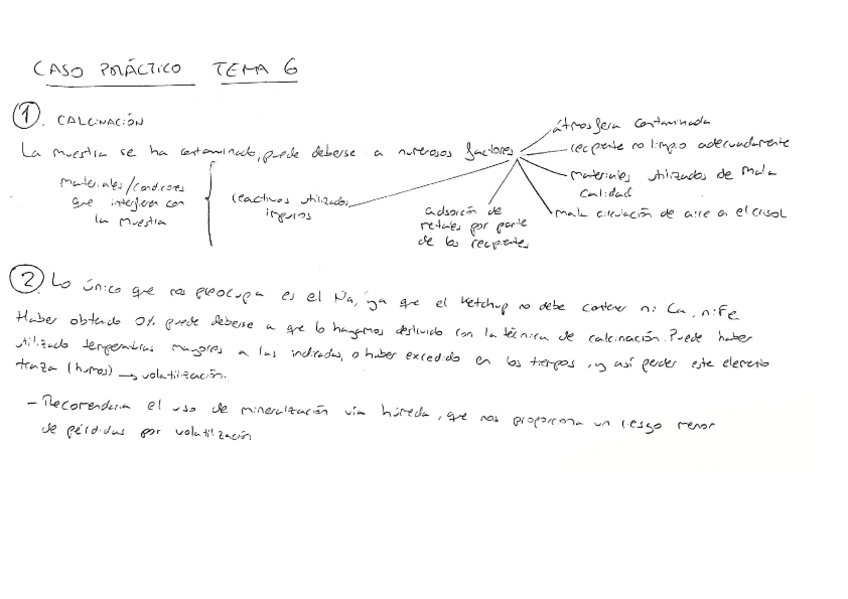 CASO PRÁCTICO TEMA 6
①. CALCINACIÓN
La muestra se ha contaminado, puede deberse a numerosos factores
atmósfera contaminada
recipiente no limpio adecuadamente
materiales utilizados de mala
calidad
mala circulación de aire en el crisol
adsorción de
metales por parte
de los recipientes
reactivos utilizados
impuros
materiales/condiciones
que interfieren con
la muestra
② Lo único que nos preocupa es el Na, ya que el Ketchup no debe contener ni Ca, ni Fe
Haber obtenido 0% puede deberse a que lo hayamos destruido con la técnica de calcinación. Puede haber
utilizado temperaturas mayores a las indicadas, o haber excedido en los tiempos, y así perder este elemento
traza (humos) → volatilización.
- Recomendaría el uso de mineralización vía húmeda, que nos proporciona un riesgo menor
de pérdidas por volatilización